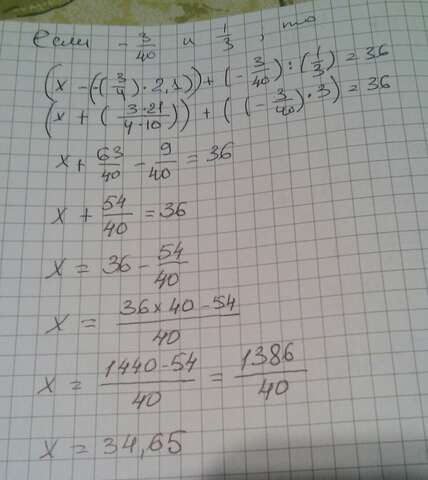 если - 3/40 и 1/3, то
(x - (-(3/4) · 2,1)) + (- 3/40) : (1/3) = 36
(x + (3·21/4·10)) + ((- 3/40) · 3) = 36
x + 63/40 - 9/40 = 36
x + 54/40 = 36
x = 36 - 54/40
x = 36×40-54/40
x = 1440-54/40 = 1386/40
x = 34,65